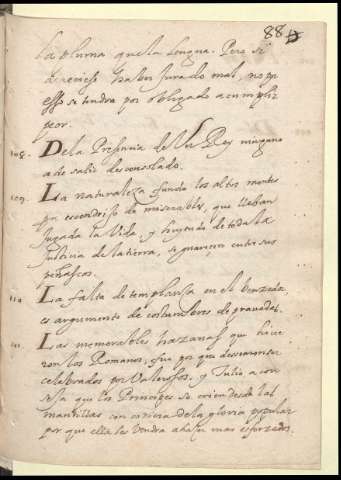 88
la pluma que la lengua. Pero si
hubiese jurado mal, no p
esso se tendra por obligado a cumplir
peor.
108. De la Presencia de Un Rey ninguno
a de salir desconsolado.
109. La naturaleza fundo los altos montes
escondrijo de miserables, que lleban
jugada la Vida, y huyendo de toda la
Justicia de la tierra, se guarecen entre sus
peñascos.
110 La falta de templansa en el
es argumento de costumbres depravadas.
111. Las memorables hazanas que hacie
ron los Romanos, fue por que deseavan ser
celebrados por Valerosos, y Tulio acon
seja que los Principes se crien desde las
mantillas con codicia de la gloria popular
por que ella les vendra a hacer mas esforzados.